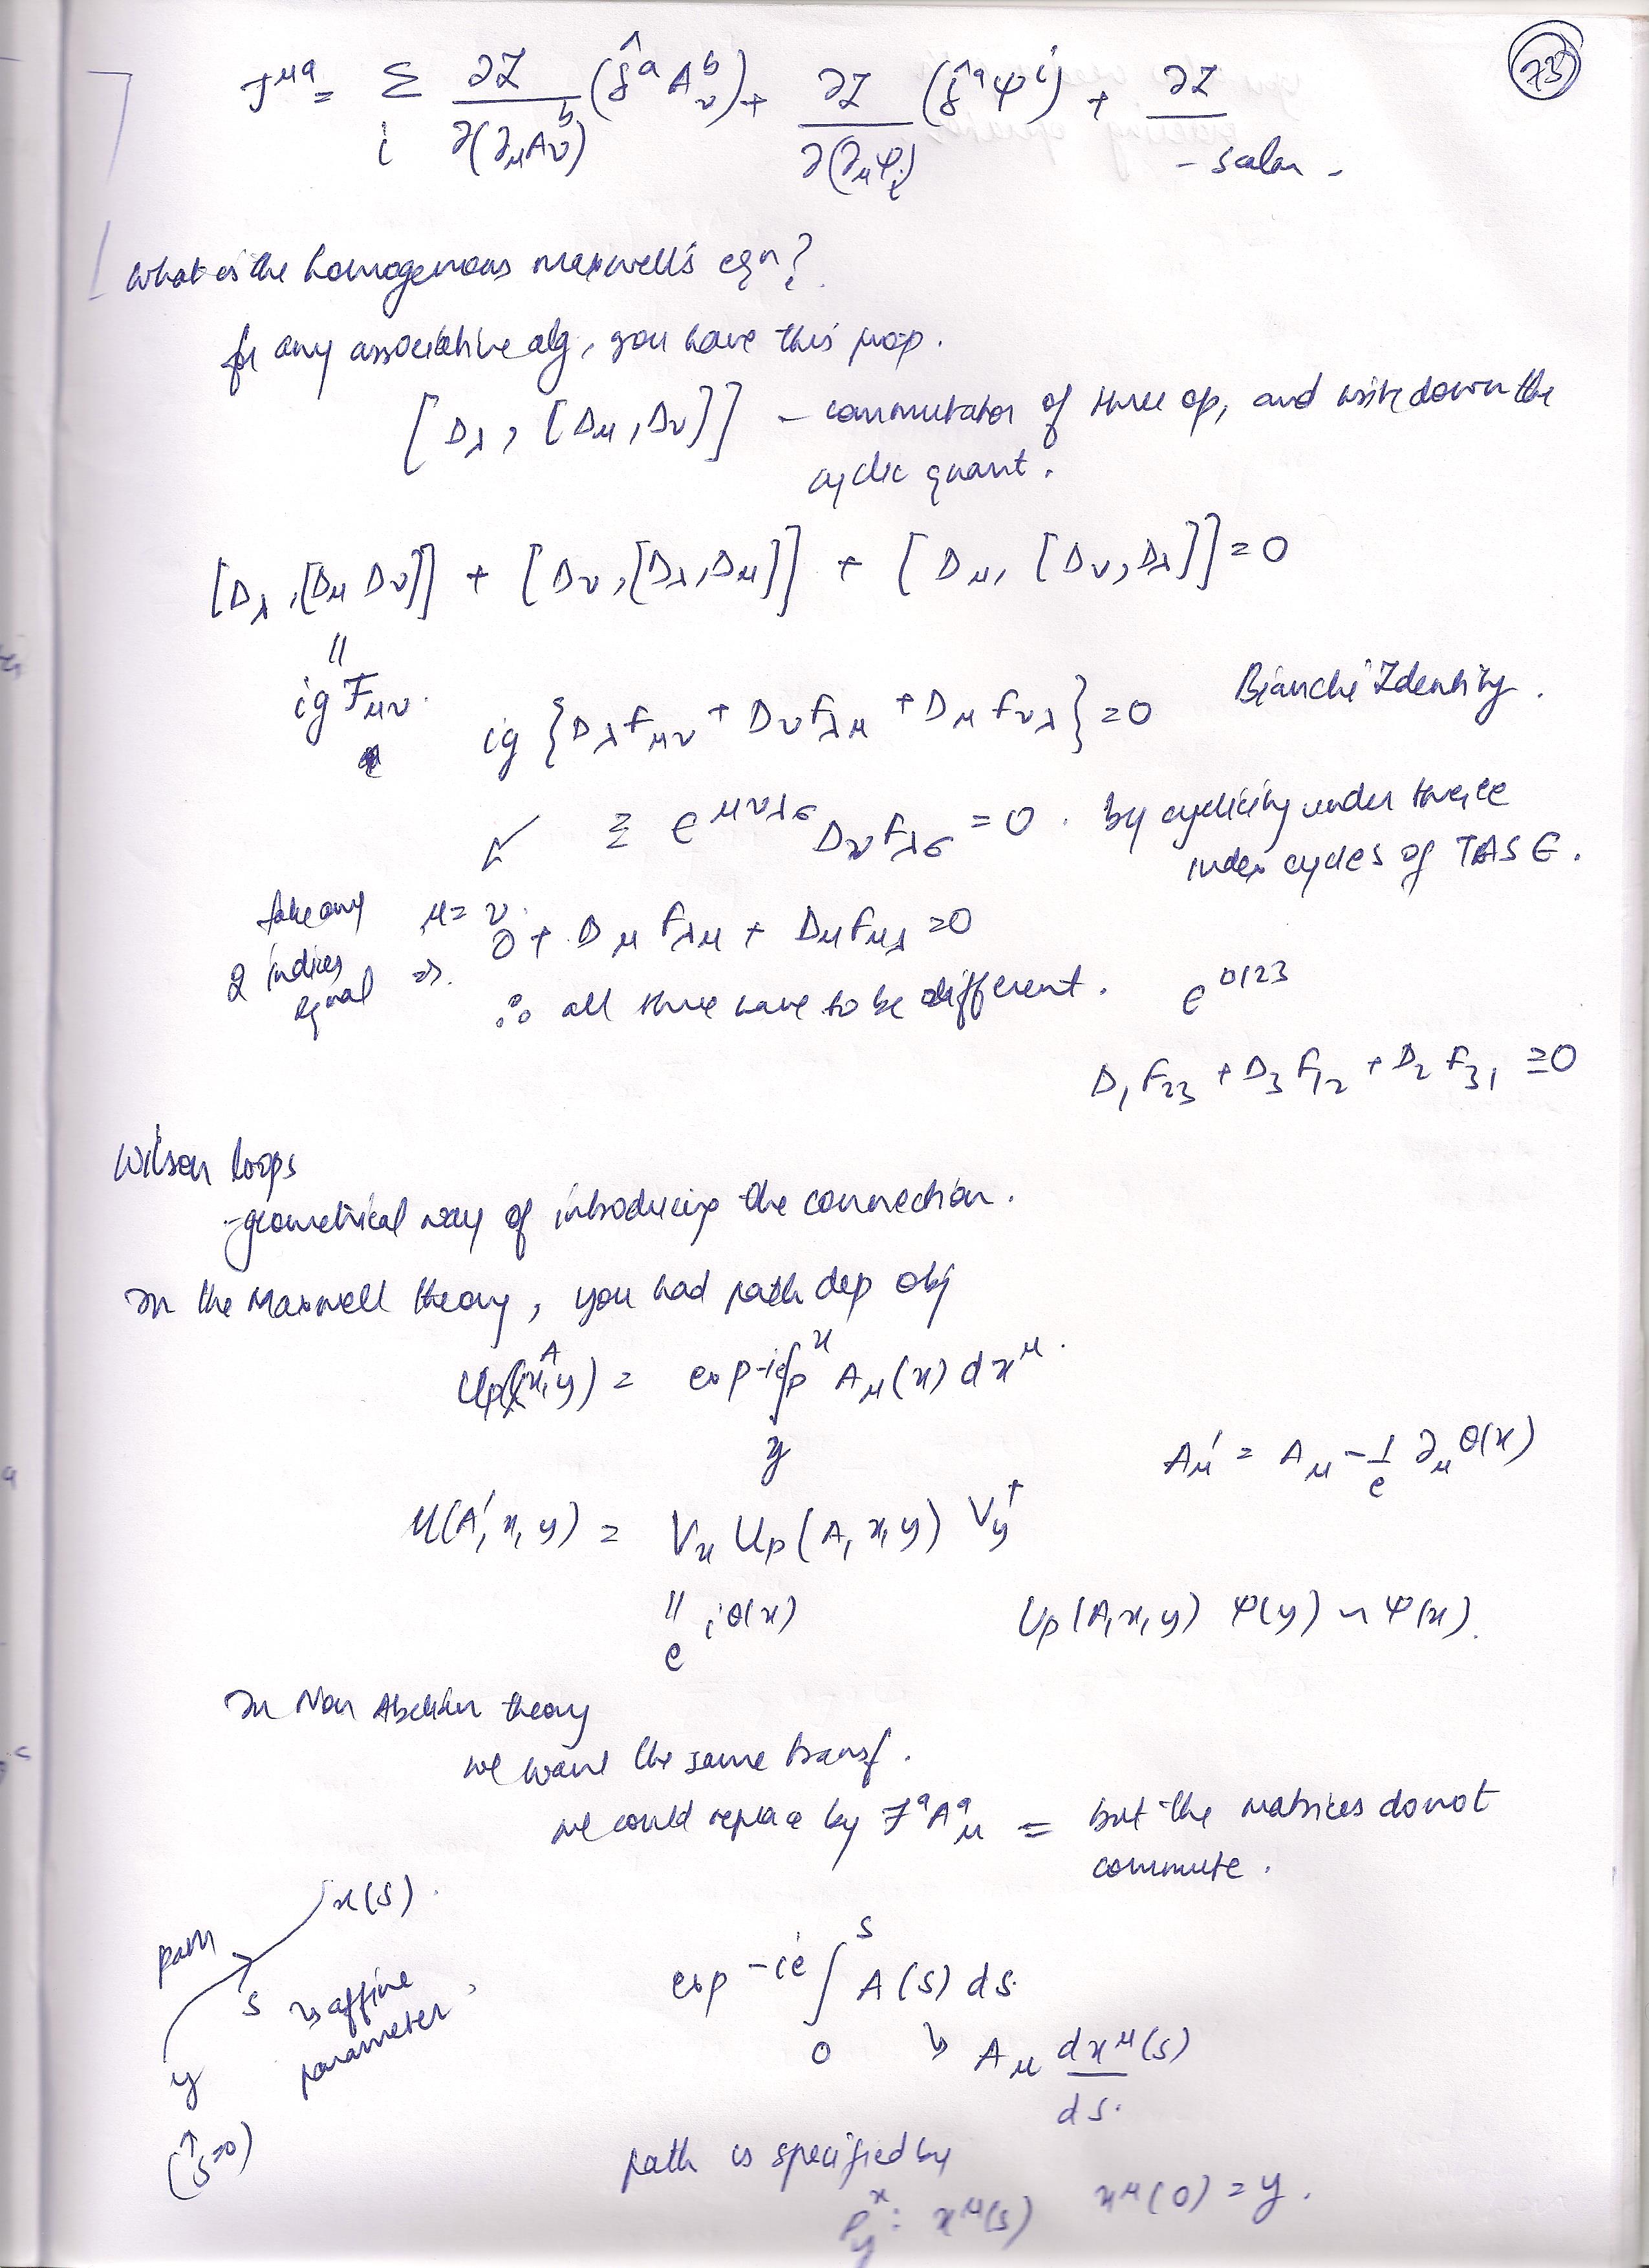 73
J^{μa} = Σ_i ∂L/∂(∂_μ A_ν^b) (δ̂^a A_ν^b) + ∂L/∂(∂_μ φ_i) (δ̂^a φ^i) + ∂L
- scalar -
What is the homogenous maxwell's eqn?
for any associative alg, you have this prop.
[D_λ, [D_μ, D_ν]] - commutator of three op, and write down the
cyclic quant.
[D_λ, [D_μ D_ν]] + [D_ν, [D_λ, D_μ]] + [D_μ, [D_ν, D_λ]] = 0
||
ig F_{μν}.
ig {D_λ F_{μν} + D_ν F_{λμ} + D_μ F_{νλ}} = 0 Bianchi Identity.
≡ ε^{μνλσ} D_ν F_{λσ} = 0. by cyclicity under three
index cycles of TASE.
take any μ = ν
2 indices equal ⇒ 0 + D_μ F_{λμ} + D_μ F_{μλ} = 0
∴ all three have to be different. ε^{0123}
D_1 F_{23} + D_3 F_{12} + D_2 F_{31} ≡ 0
Wilson loops
- geometrical way of introducing the connection.
In the Maxwell theory, you had path dep obj
U_P(A, x, y) = exp -ie ∫_{P y}^{x} A_μ(x) dx^μ.
A_μ' = A_μ - 1/e ∂_μ θ(x)
U(A', x, y) = V_x U_P(A, x, y) V_y^†
||
e^{iθ(x)} U_P(A, x, y) φ(y) ~ φ(x).
In Non Abelian theory
we want the same transf.
we could replace by T^a A_μ^a = but the matrices do not
commute.
x(s).
path
s is affine
parameter
y
(↑ s=0)
exp -ie ∫_0^s A(s) ds.
↳ A_μ dx^μ(s)/ds.
path is specified by
P_y^x : x^μ(s) x^μ(0) = y.